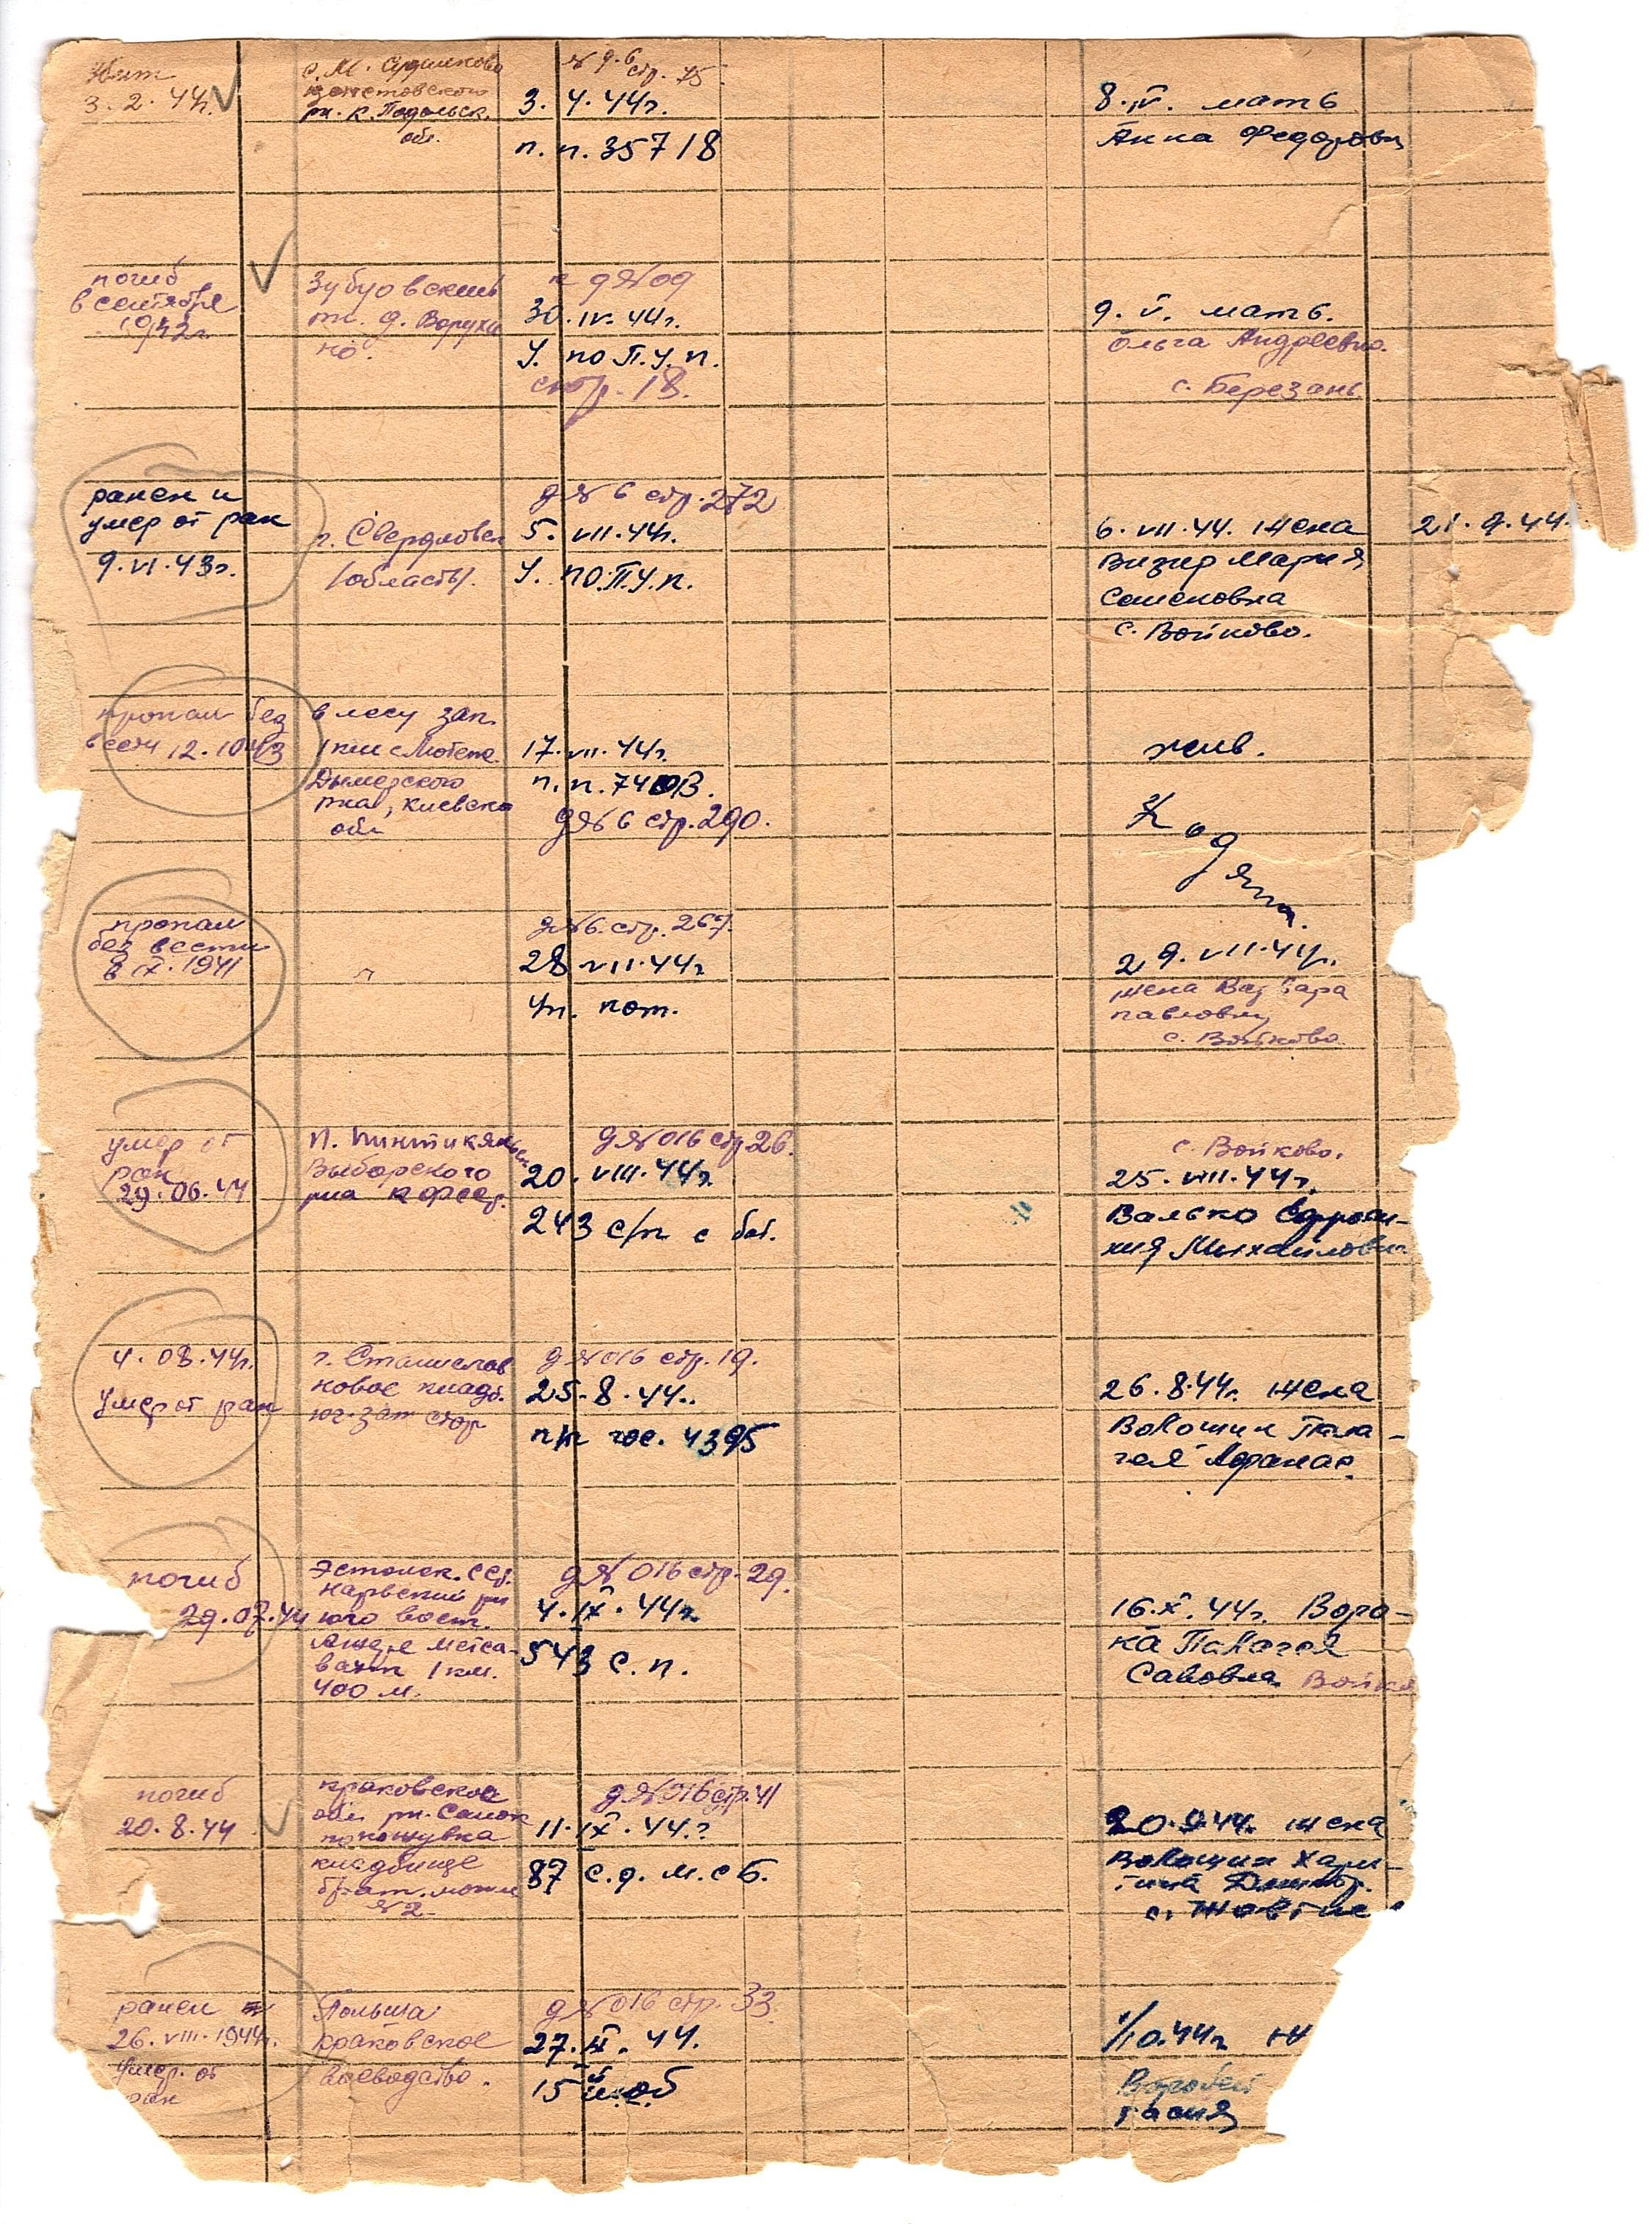 Убит
3.2.44г.
обл.
д. 6
стр. 75
3.4.44г.
п.п. 35718
8.IV. мать
Анна Федоровн
погиб
в сентябре
1942г.
Зубцовский
рн. д. Ворухи
но.
30.IV.44г.
У. по П.У.п.
стр. 18.
9.V. мать.
Ольга Андреевна.
с. Березань
ранен и
умер от ран
9.VI.43г.
г. Свердловск
(область).
д № 6 стр. 272
5.VII.44г.
У. по П.У.п.
6.VII.44. жена
Визир Мария
Семеновна
с. Войково.
21.9.44.
пропал без
вести 12.1043
в лесу зап.
1 км с
Дымерского
рна, Киевско
обл
17.VII.44г.
д № 6 стр. 290.
жив.
пропал
без вести
в IX.1941
"
д № 6. стр. 267.
28 VII.44г
29.VII.44г.
жена Варвара
павловн
с. Войково
умер от
ран
29.06.44
Выборского
рна
д № 016 стр 26.
20.VIII.44г.
243 с/п с бат.
с. Войково.
25.VIII.44г.
Валько Ефроси-
ния Михайловн
4.08.44г.
умер от ран
г. Станислав
новое кладб.
юг-зап стор
д № 016 стр. 19.
25.8.44г.
п/п гос. 4395
26.8.44г. жена
Волошин Пела-
гея Афанас.
погиб
29.07.44
Эстонск. ССР.
Нарвский рн
юго вост.
1 км.
400 м.
д № 016 стр. 29.
4.IX.44г.
543 с.п.
16.X.44г. Вора-
ка Палагея
Савовна Войко
погиб
20.8.44
краковское
обл рн. Санок
кладбище
брат. могил
№ 2
д № 016 стр. 41
11.IX.44.г
87 с.д. м.с б.
20.9.44г. жена
Волошин Хари-
тина Дмитр.
с. Жовтне
ранен
26.VIII.1944г.
умер. от
ран
Польша
краковское
воеводство.
д № 016 стр. 33.
27.IX.44.
1/10.44г ж
Воробей